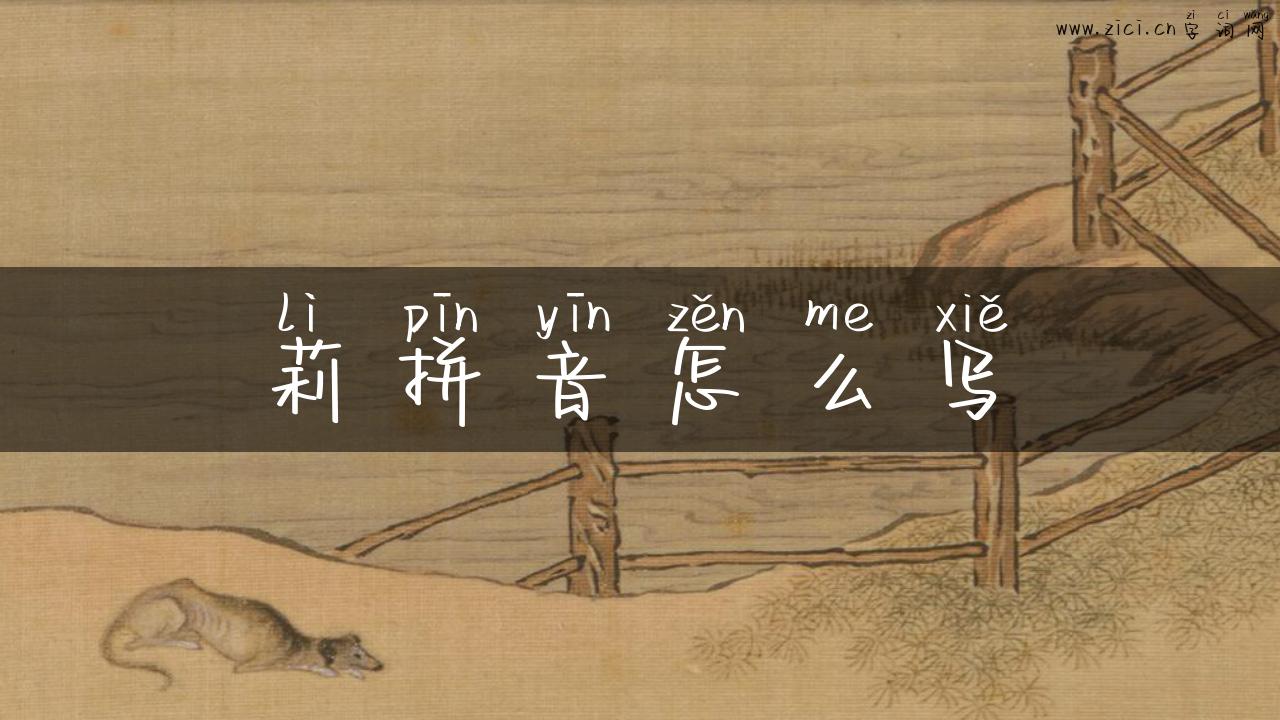 zi ci wang
www.zici.cn 字词网
lì pīn yīn zěn me xiě
莉拼音怎么写